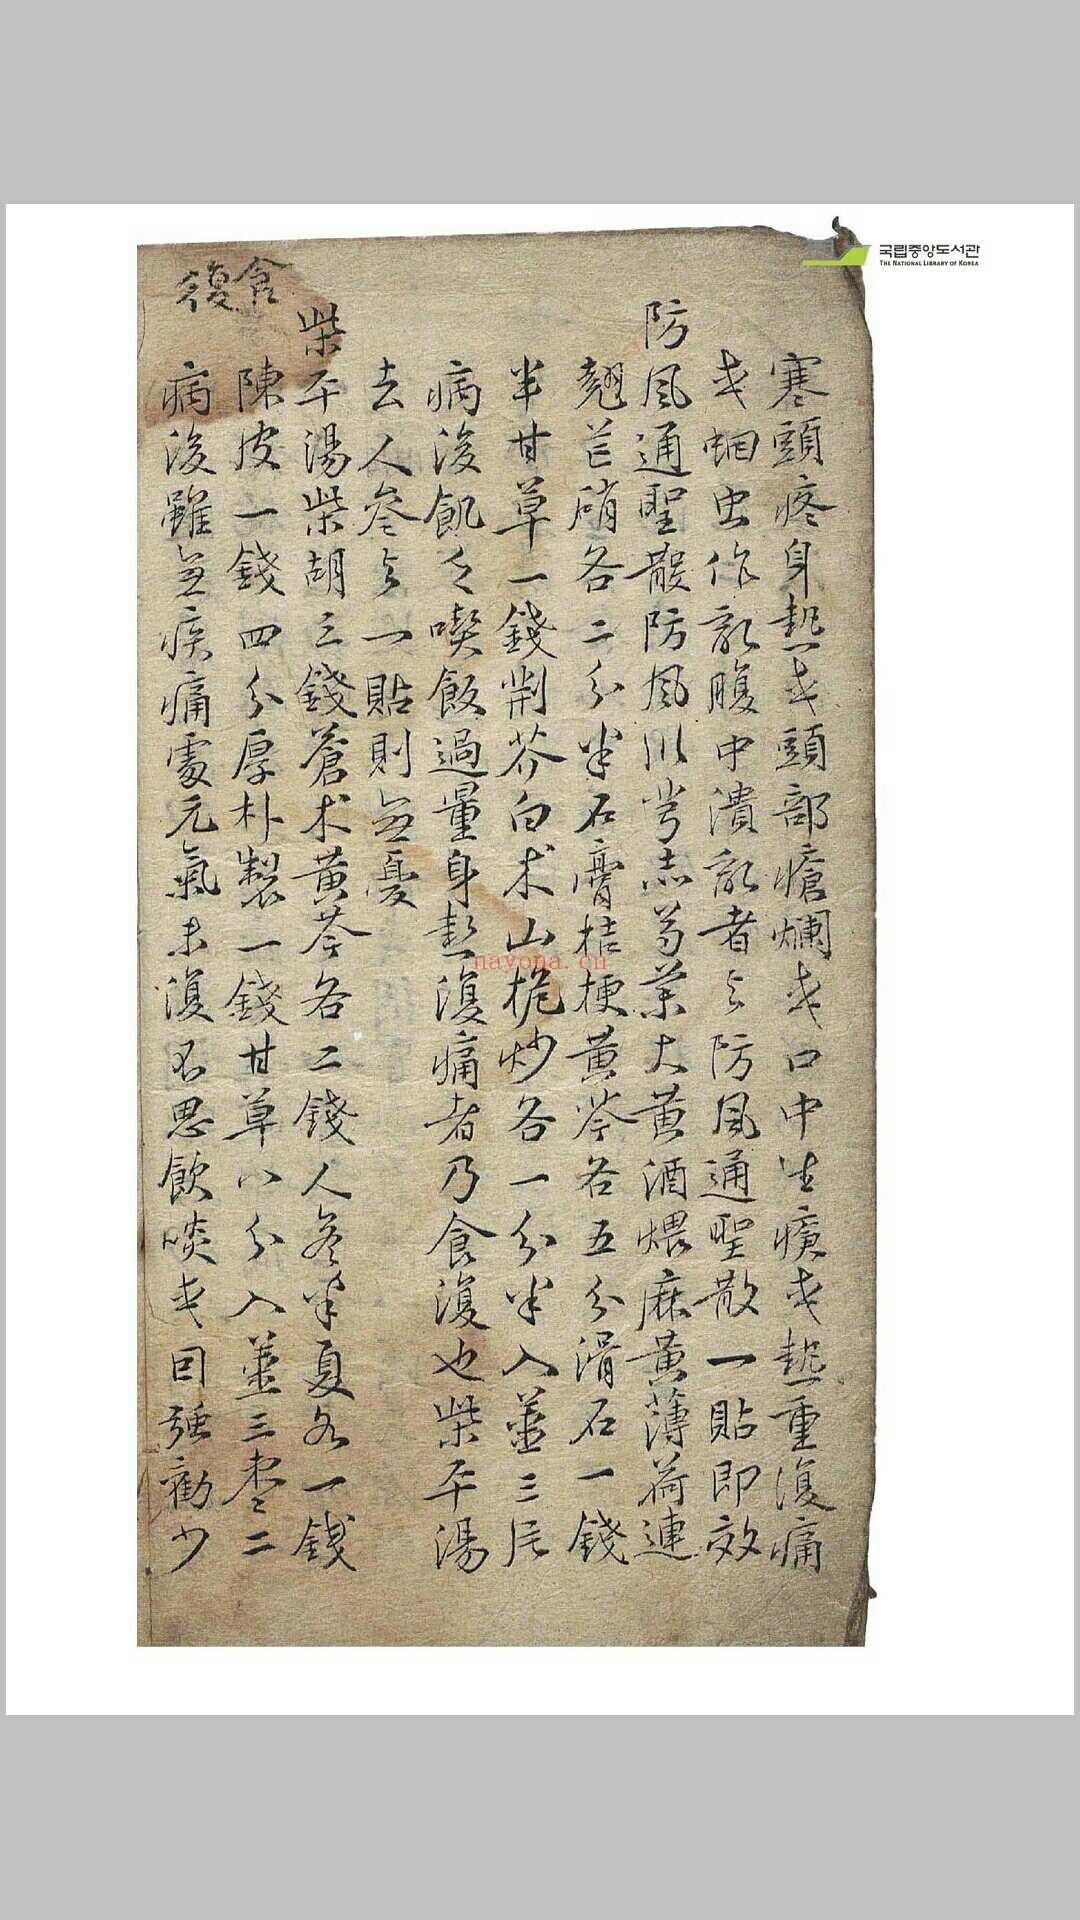 국립중앙도서관
THE NATIONAL LIBRARY OF KOREA
寒頭疼身熱或頭部瘡爛或口中生瘡或熱重復痛
或蛔虫作亂腹中潰亂者与防風通聖散一貼即效
防風通聖散防風川芎当芍藥大黃酒煨麻黃薄荷連
翹芒硝各二分半石膏桔梗黃芩各五分滑石一錢
半甘草一錢荆芥白朮山梔炒各一分半入薑三片
病後飢乏喫飯過量身熱復痛者乃食復也柴平湯
去人參与一貼則無憂
柴平湯柴胡三錢蒼朮黃芩各二錢人參半夏各一錢
食復
陳皮一錢四分厚朴製一錢甘草八分入薑三棗二
病後雖無疾痛處元氣未復不思飮啖或因强勸少
nayona.cn